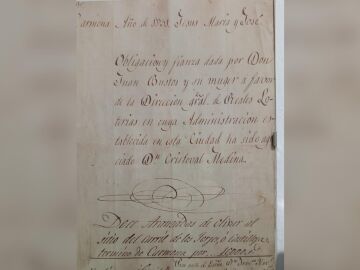 Carmona Año de 1829 Jesus Maria y José
Obligacion y fianza dada por Don
Juan Bustos y su muger a favor
de la Direccion gral. de Reales Lo-
terias en cuya Administracion es-
tablecida en esta Ciudad ha sido ag-
ciado Dn. Cristoval Medina.
Doce Aranzadas de olivar al
sitio del carril de los
termino de Carmona por